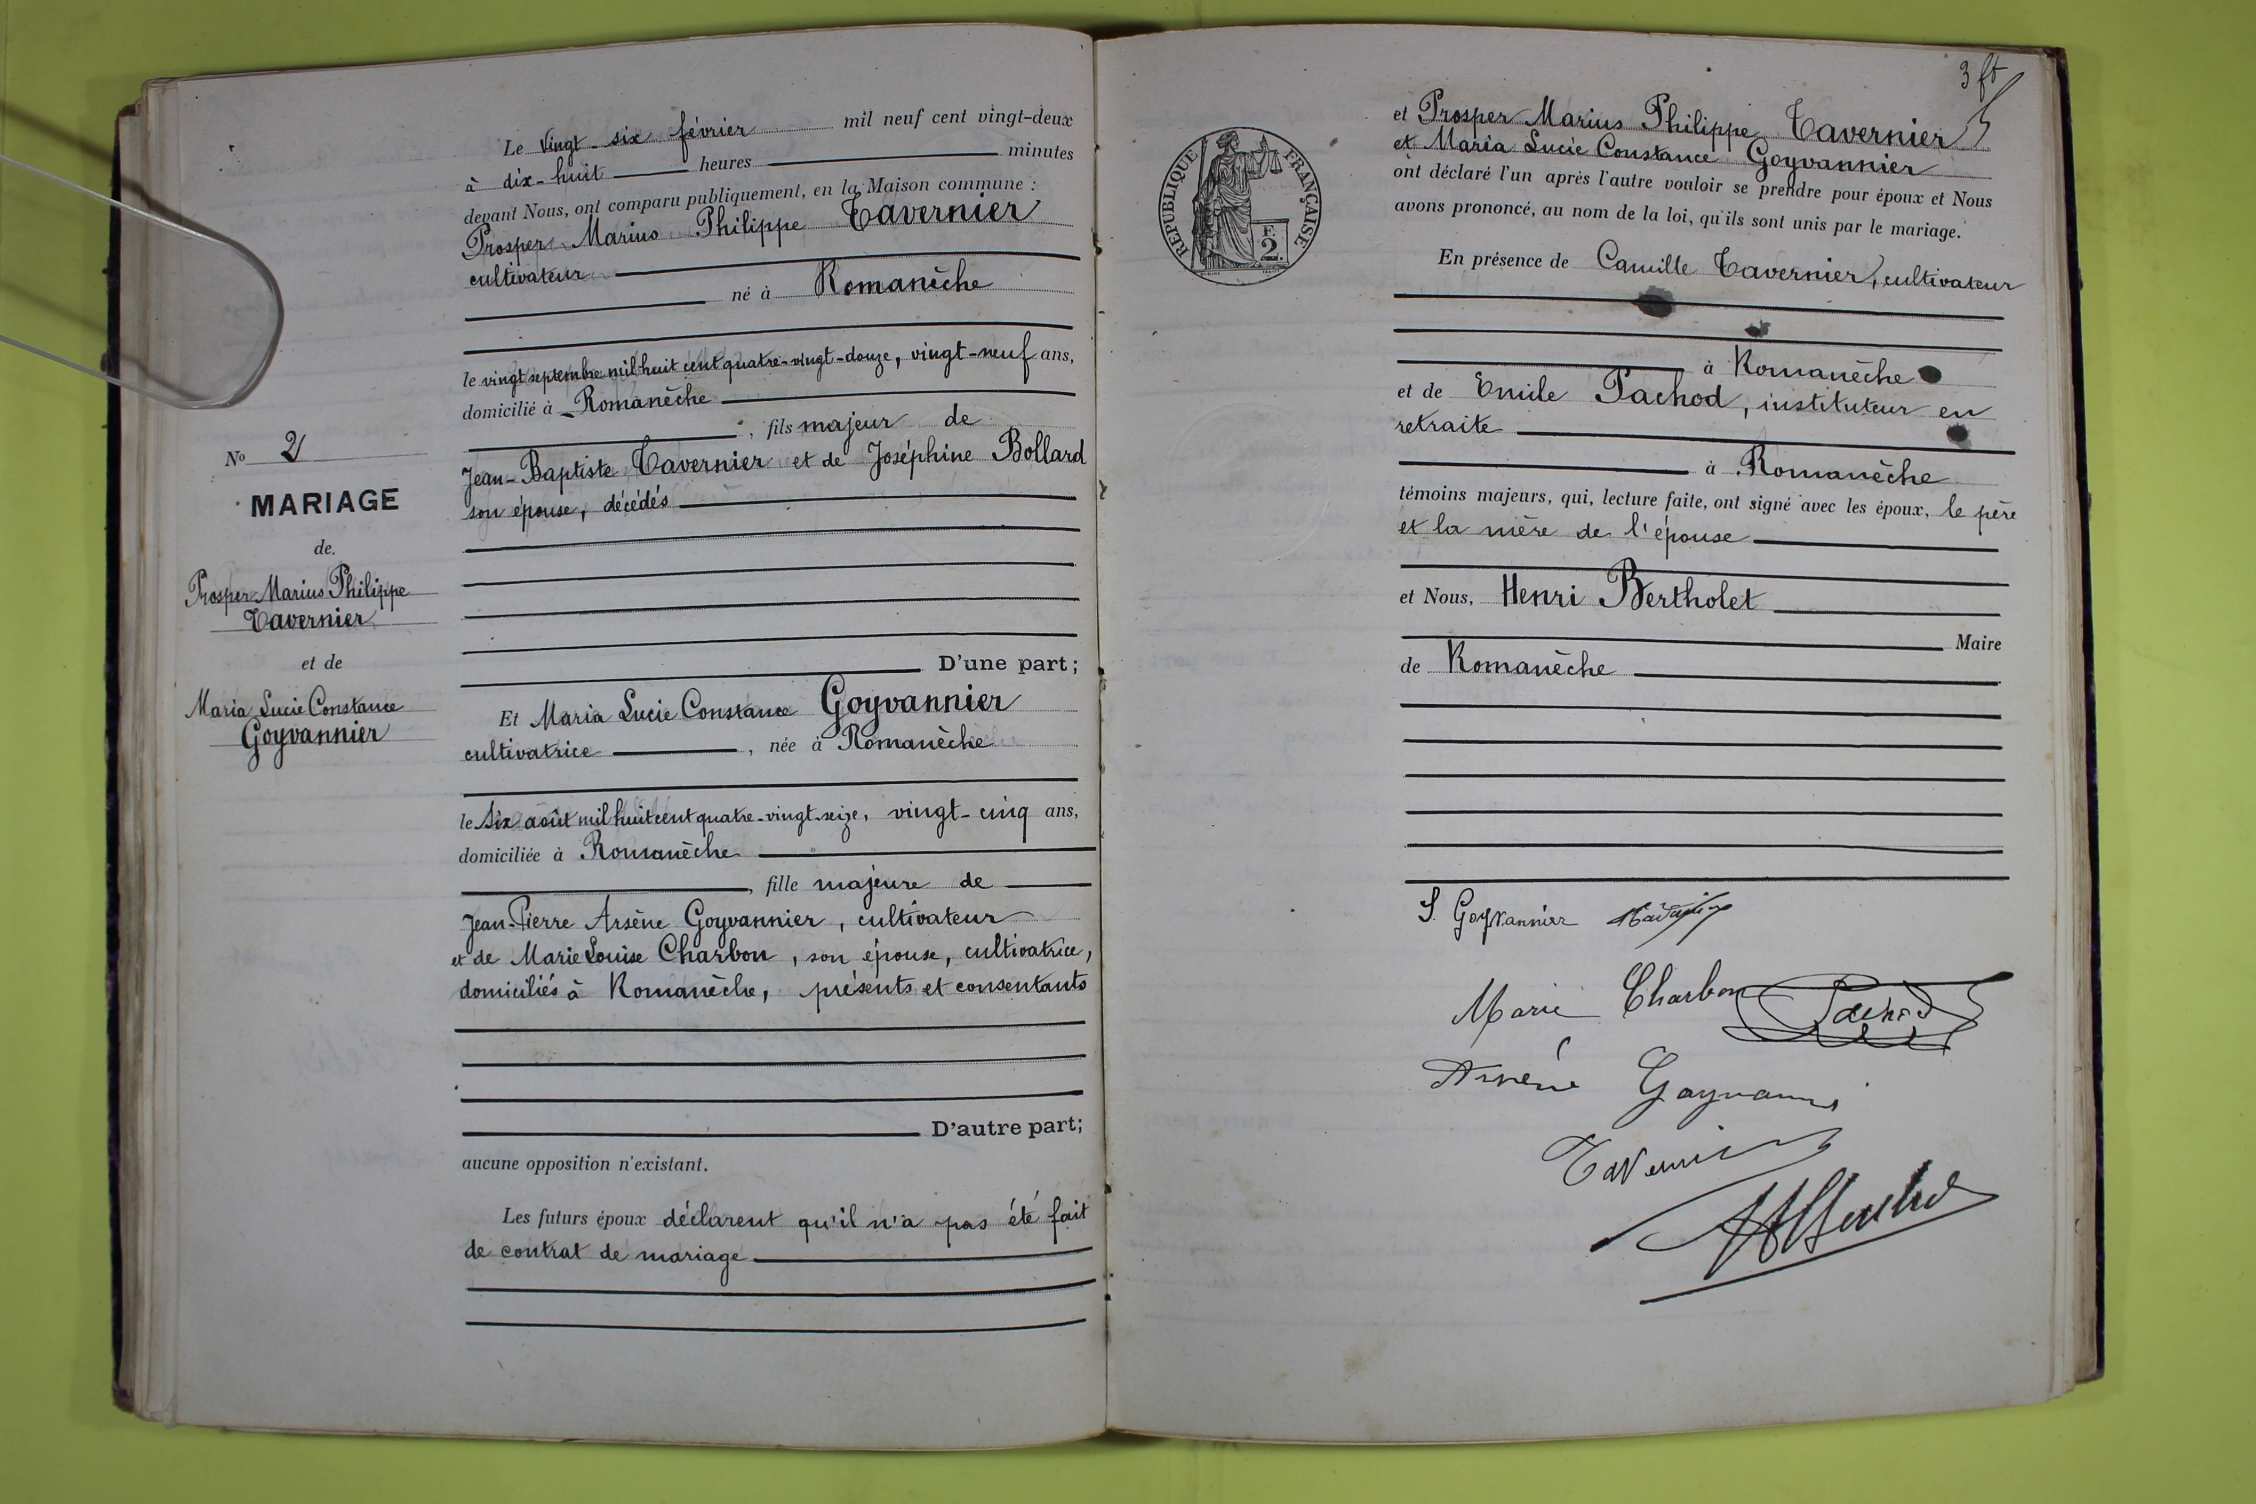 Le vingt-six février mil neuf cent vingt-deux
à dix-huit heures minutes
devant Nous, ont comparu publiquement, en la Maison commune :
Prosper Marius Philippe Tavernier
cultivateur
né à Romanèche
le vingt septembre mil huit cent quatre-vingt-douze, vingt-neuf ans,
domicilié à Romanèche
, fils majeur de
Jean-Baptiste Tavernier et de Joséphine Bollard
son épouse, décédés
D'une part;
Et Maria Lucie Constance Goyvannier
cultivatrice , née à Romanèche
le six août mil huit cent quatre-vingt-seize, vingt-cinq ans,
domiciliée à Romanèche
, fille majeure de
Jean-Pierre Arsène Goyvannier, cultivateur
et de Marie Louise Charbon, son épouse, cultivatrice,
domiciliés à Romanèche, présents et consentants
D'autre part;
aucune opposition n'existant.
Les futurs époux déclarent qu'il n'a pas été fait
de contrat de mariage
No 2
MARIAGE
de.
Prosper Marius Philippe
Tavernier
et de
Maria Lucie Constance
Goyvannier
3 ft
RÉPUBLIQUE FRANÇAISE
F.
2.
et Prosper Marius Philippe Tavernier
et Maria Lucie Constance Goyvannier
ont déclaré l'un après l'autre vouloir se prendre pour époux et Nous
avons prononcé, au nom de la loi, qu'ils sont unis par le mariage.
En présence de Camille Tavernier, cultivateur
à Romanèche
et de Emile Pachod, instituteur en
retraite
à Romanèche
témoins majeurs, qui, lecture faite, ont signé avec les époux, le père
et la mère de l'épouse
et Nous, Henri Bertholet
Maire
de Romanèche
Goyvannier
Marie Charbon Pachod
Arsène Goyvannier
Tavernier